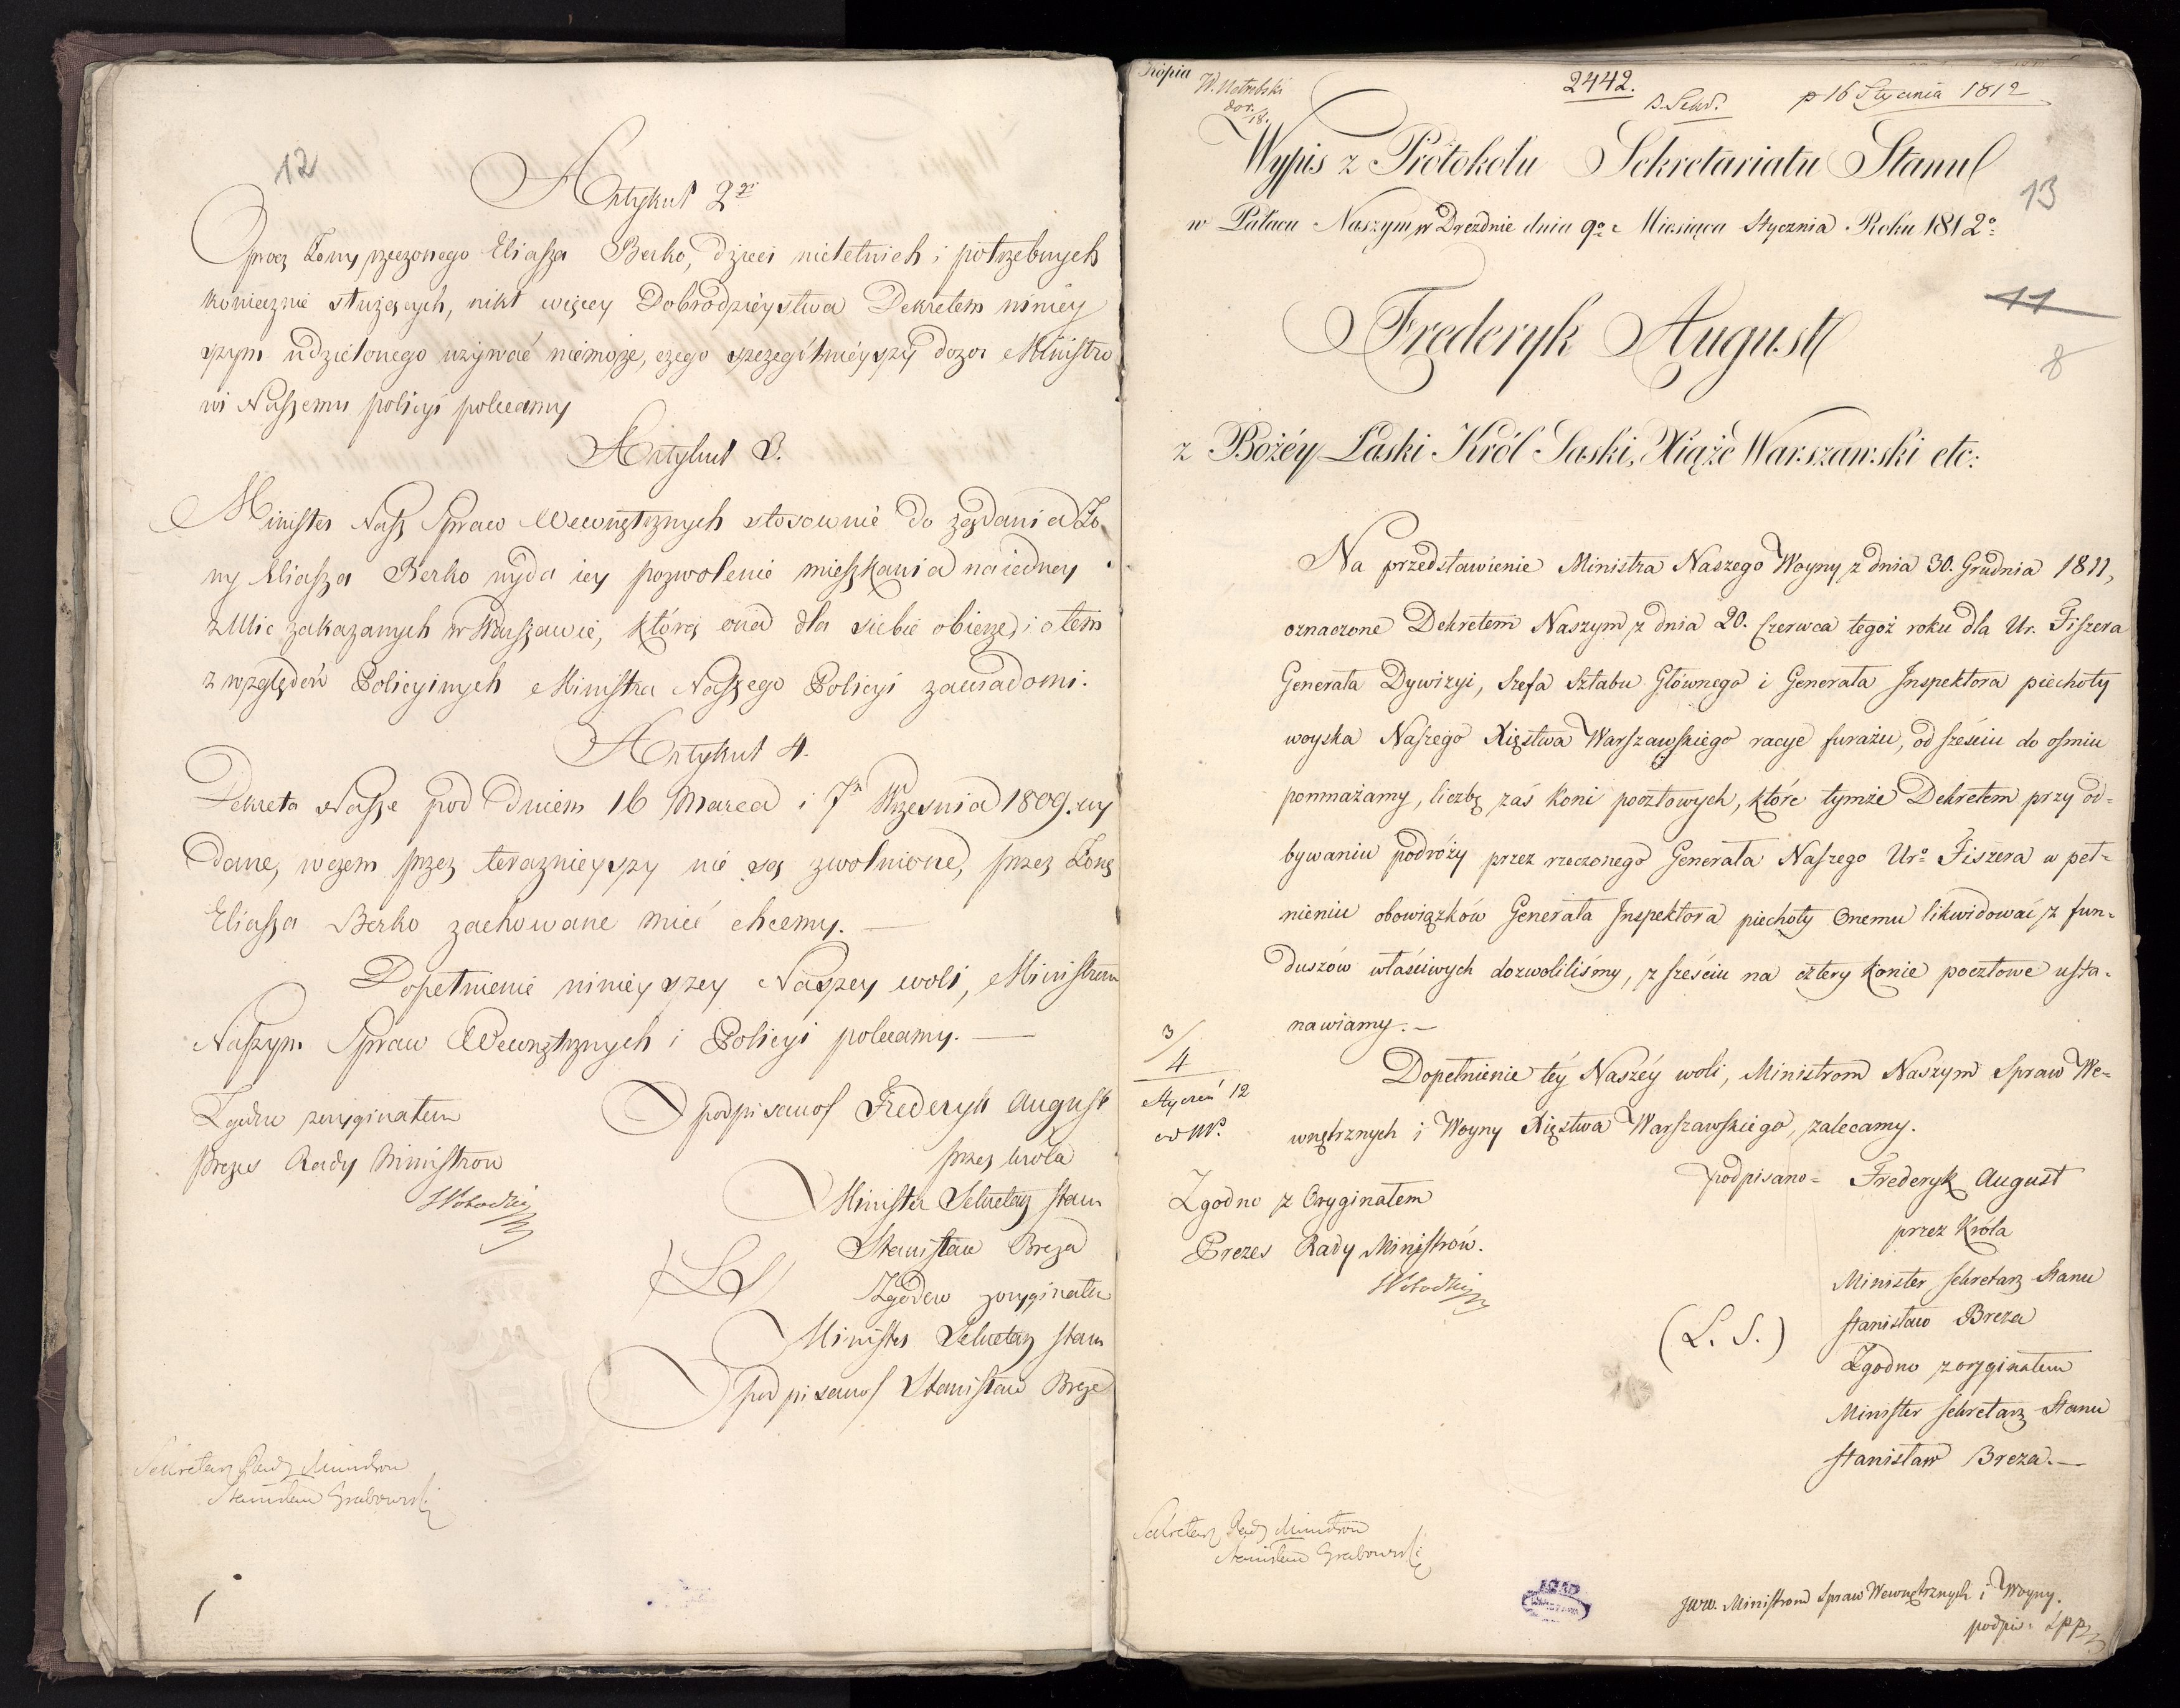 12
Artykuł 2gi
Oprócz Żony rzeczonego Eliasza Berko, dzieci nieletnich i potrzebnych
koniecznie służących, nikt więcey Dobrodzieystwa Dekretem niniey
szym udzielonego używać niemoże, czego szczególnieyszy dozor Ministro
wi Naszemu policyi polecamy
Artykuł 3.
Minister Nasz Spraw Wewnętrznych stosownie do żądania Żo
ny Eliasza Berko wyda iey pozwolenie mieszkania na iedney
z Ulic zakazanych w Warszawie, którą ona dla siebie obierze, i o tem
z względów Policyinych Ministra Naszego Policyi zawiadomi.
Artykuł 4.
Dekreta Nasze pod Dniem 16 Marca i 7 Września 1809. wy
dane, w czem przez teraznieyszy nie są zwolnione, przez Żonę
Eliasza Berko zachowane mieć chcemy. —
Dopełnienie ninieyszey Naszey woli, Ministrom
Naszym Spraw Wewnętrznych i Policyi polecamy. —
Zgodno z oryginałem
Prezes Rady Ministrow
podpisano Frederyk August
przez Króla
Minister Sekretarz Stanu
Stanisław Breza
(LS)
Zgodno z oryginałem
Minister Sekretarz Stanu
podpisano Stanisław Breza
Sekretarz Rady Ministrow
Stanisław Grabowski
Kopia
2442.
16 Stycznia 1812
Wypis z Protokołu Sekretariatu Stanu
13
w Pałacu Naszym w Dreznie dnia 9o Miesiąca Stycznia Roku 1812o
11
8
Frederyk August
z Bożéy Łaski Król Saski, Xiąże Warszawski etc:
Na przedstawienie Ministra Naszego Woyny z dnia 30. Grudnia 1811,
oznaczone Dekretem Naszym z dnia 20. Czerwca tegoż roku dla Ur. Fiszera
Generała Dywizyi, Szefa Sztabu Głównego i Generała Inspektora piechoty
woyska Naszego Xięstwa Warszawskiego racye furażu, od sześciu do ośmiu
pomnażamy, liczbę zaś koni pocztowych, które tymże Dekretem przy od=
bywaniu podróży przez rzeczonego Generała Naszego Uro Fiszera w peł=
nieniu obowiązków Generała Inspektora piechoty Onemu likwidować z fun=
duszów właściwych dozwoliliśmy, z sześciu na cztery konie pocztowe usta=
nawiamy. —
3/4
Styczeń 12
Dopełnienie téy Naszéy woli, Ministrom Naszym Spraw We=
wnętrznych i Woyny Xięstwa Warszawskiego, zalecamy.
podpisano = Frederyk August
przez Króla
Zgodno z Oryginałem
Prezes Rady Ministrów.
Minister Sekretarz Stanu
Stanisław Breza
(L. S.)
Zgodno z oryginałem
Minister Sekretarz Stanu
Stanisław Breza. —
Sekretarz Rady Ministrów
Stanisław Grabowski
JWW. Ministrom Spraw Wewnętrznych i Woyny.